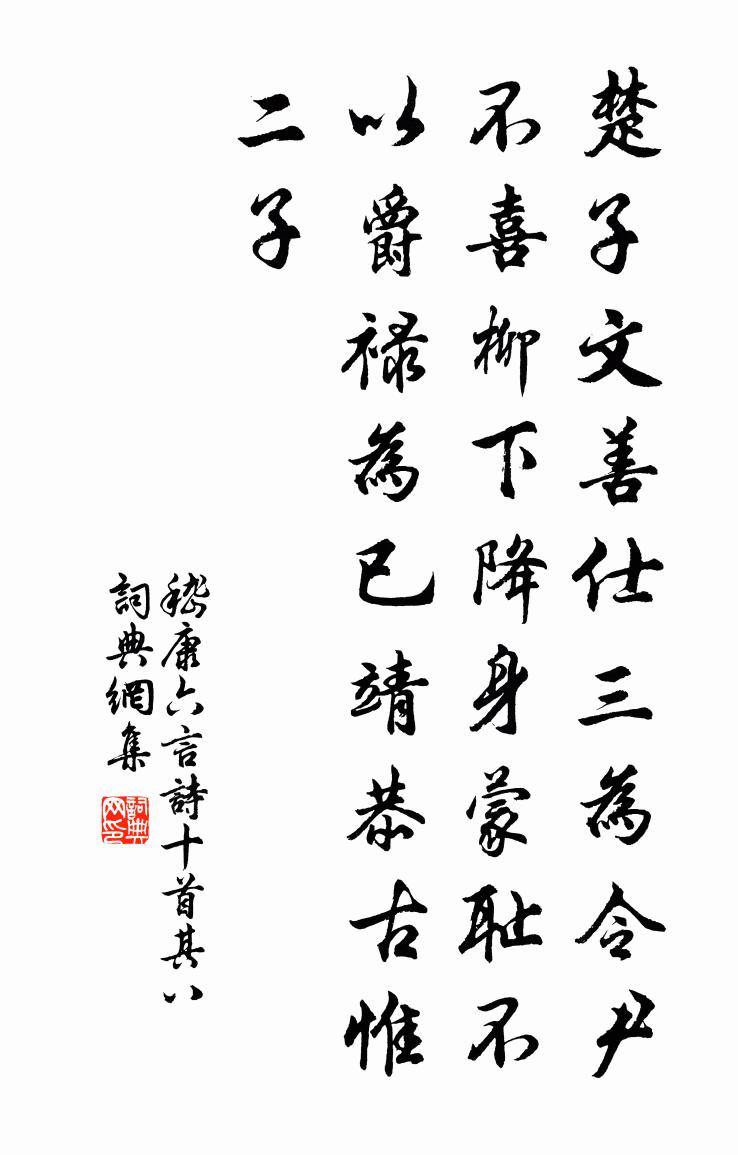 楚子文善仕三為令尹
不喜柳下降身蒙耻不
以爵禄為已靖恭古惟
二子
嵇康六言詩十首其八
詞典網集
詞典网印